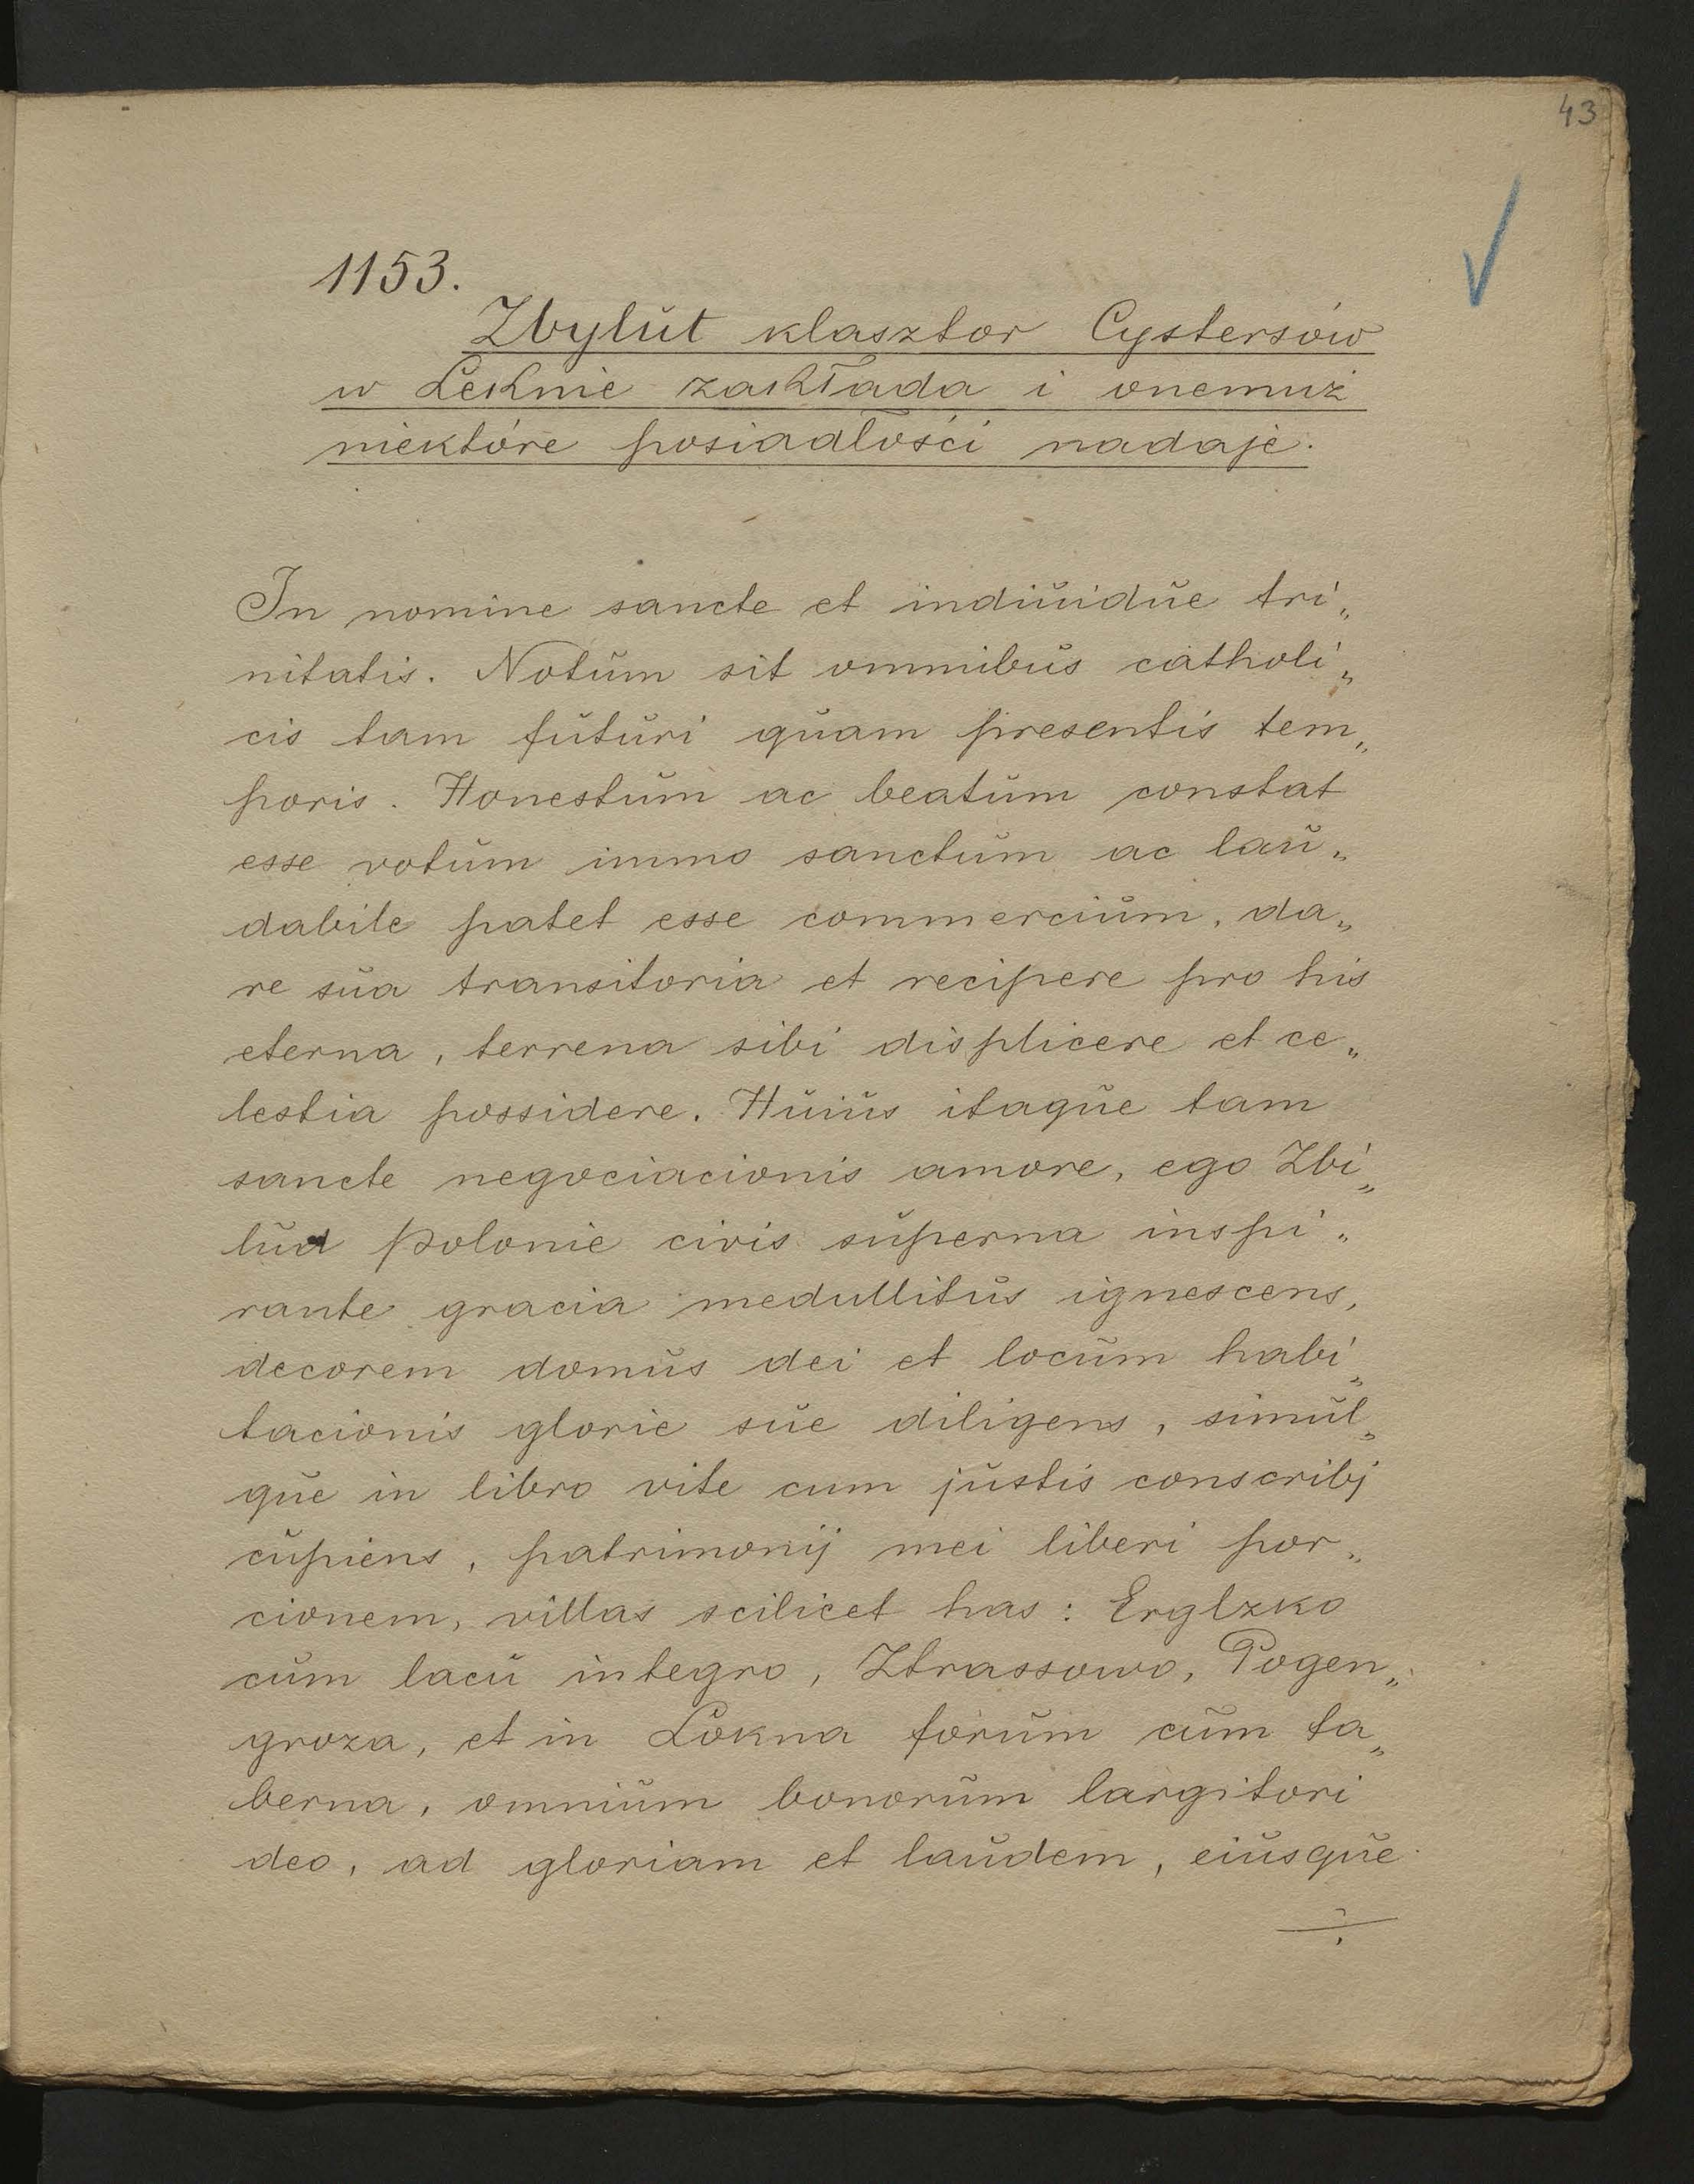 43
1153.
Zbylut klasztor Cystersów
w Łeknie zakłada i onemuż
niektóre posiadłości nadaje.
In nomine sancte et indiuidue tri„
nitatis. Notum sit omnibus catholi„
cis tam futuri quam presentis tem„
poris. Honestum ac beatum constat
esse votum immo sanctum ac lau„
dabile patet esse commercium, da„
re sua transitoria et recipere pro his
eterna, terrena sibi displicere et ce„
lestia possidere. Huius itaque tam
sancte negociacionis amore, ego Zbi„
lud Polonie civis superna inspi„
rante gracia medullitus ignescens,
decorem domus dei et locum habi„
tacionis glorie sue diligens, simul„
que in libro vite cum justis conscribj
cupiens, patrimonij mei liberi por„
cionem, villas scilicet has: Erglzko
cum lacu integro, Ztrassowo, Pogen„
groza, et in Lokna forum cum ta„
berna, omnium bonorum largitori
deo, ad gloriam et laudem, eiusque